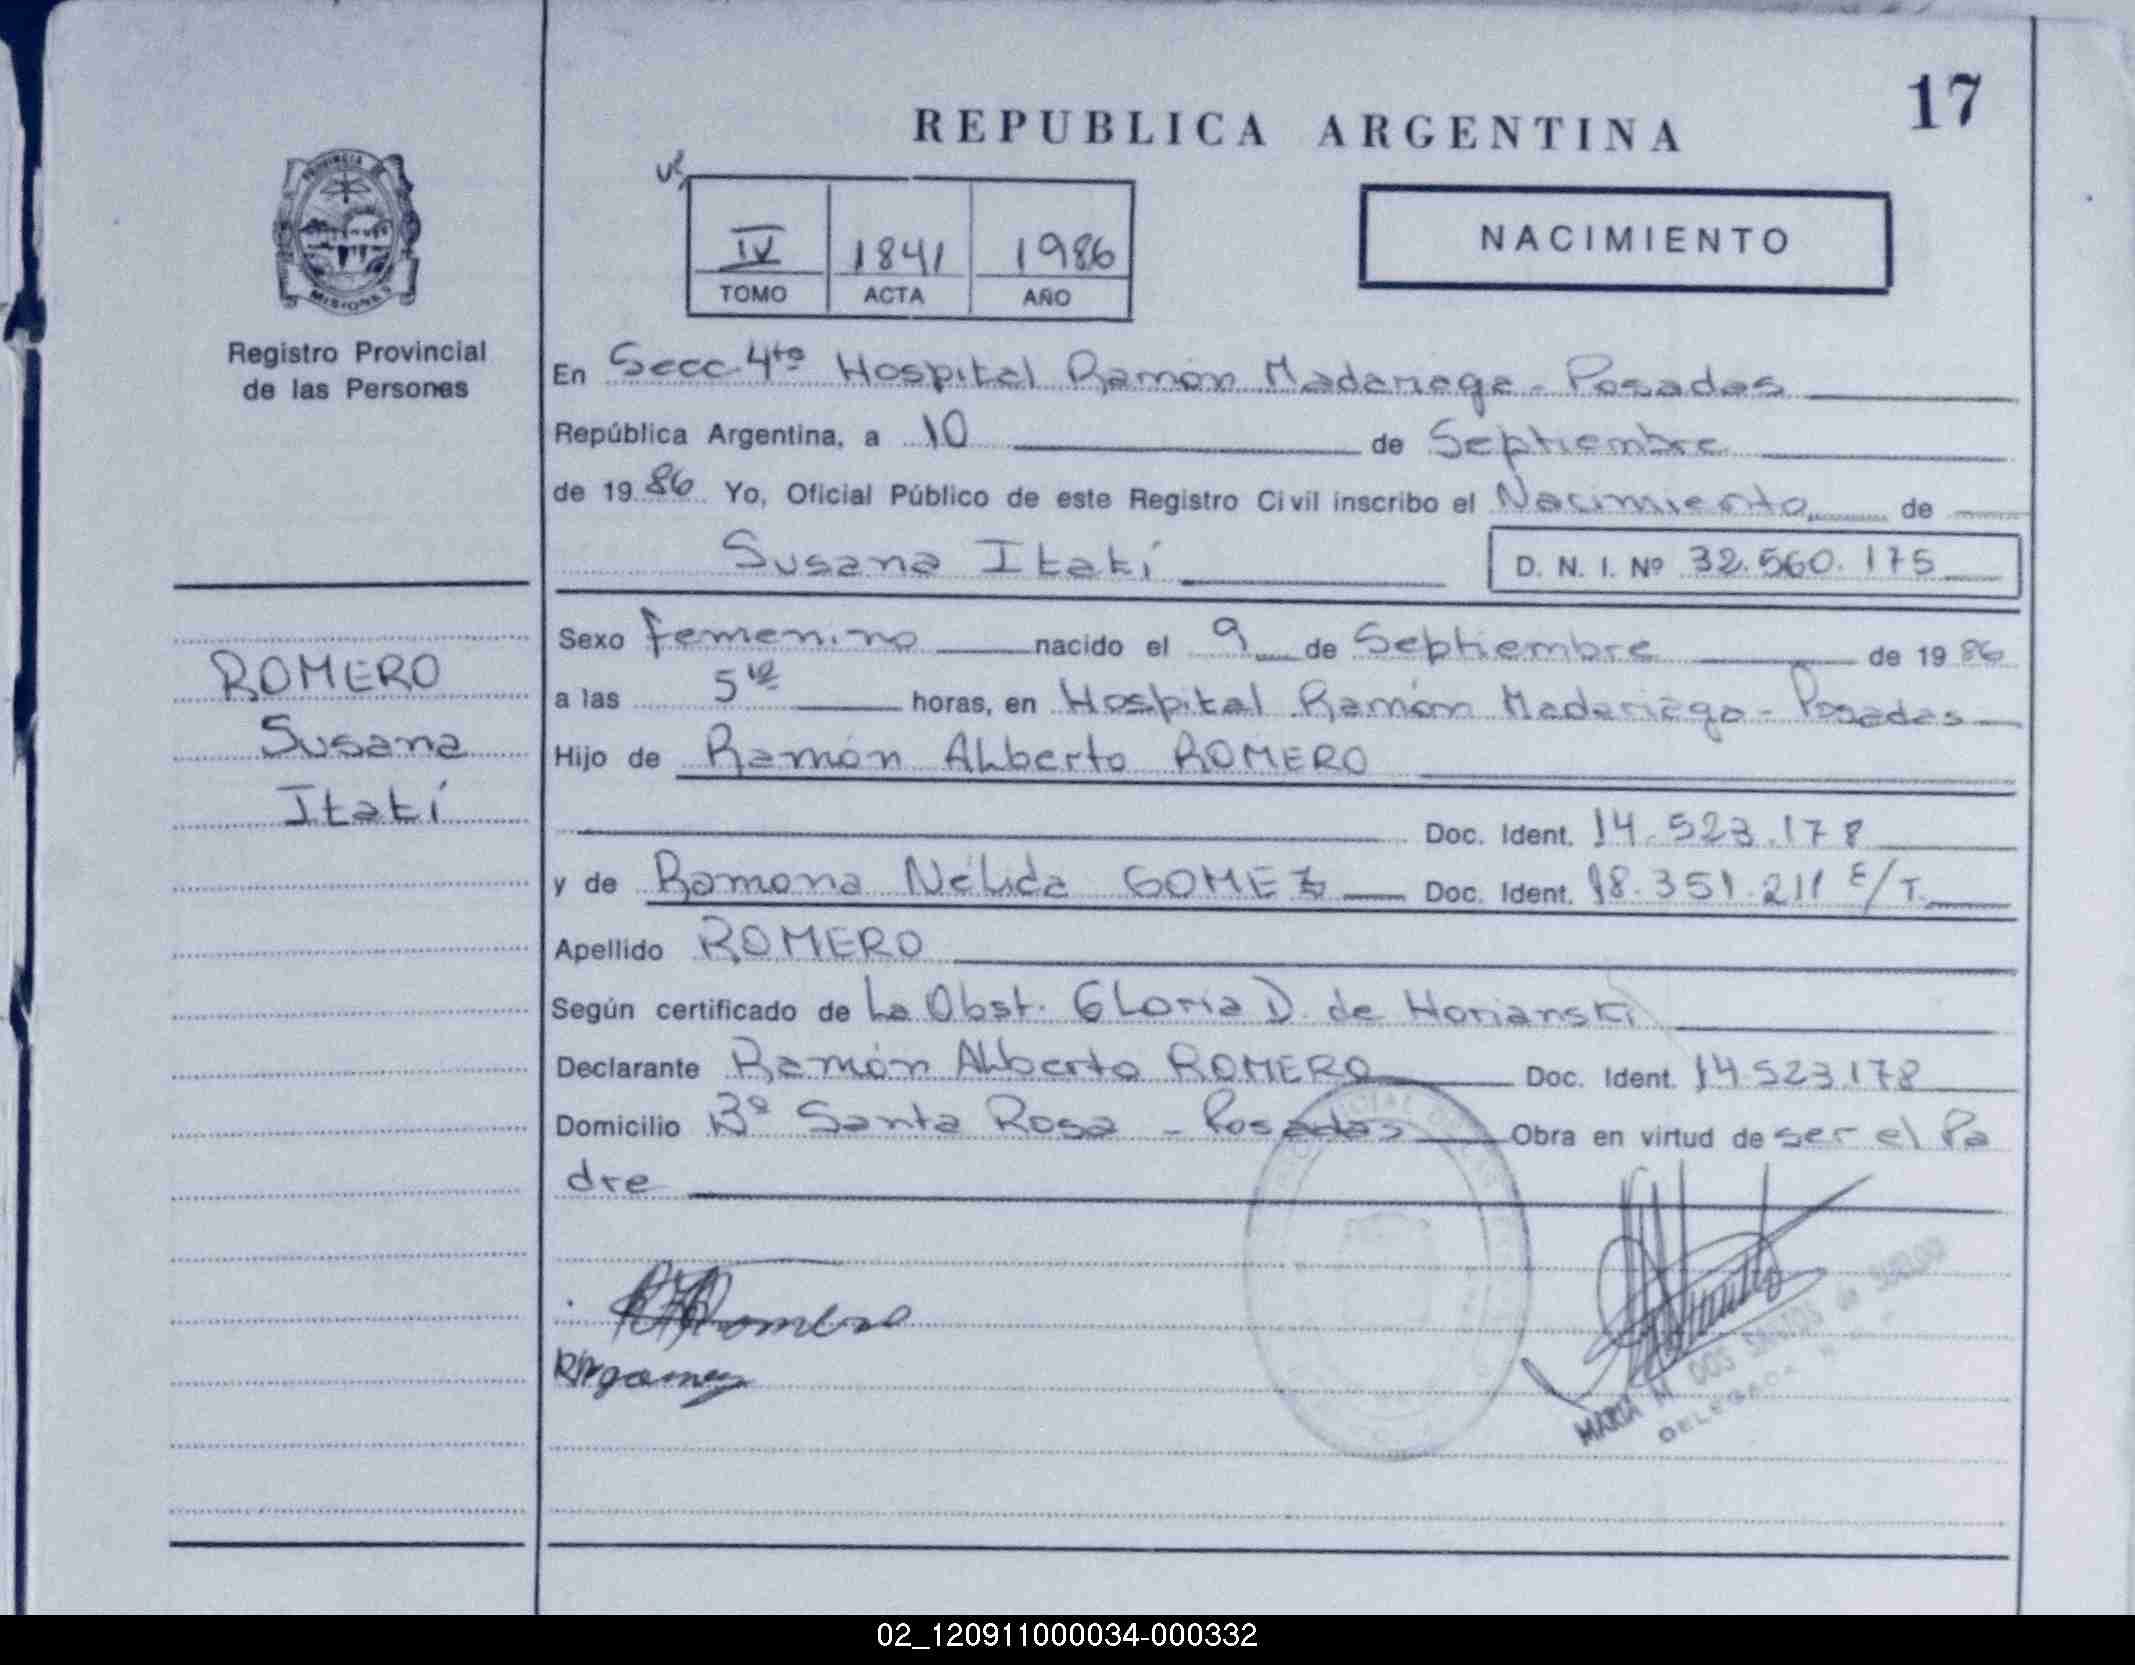 17
REPUBLICA ARGENTINA
NACIMIENTO
IV 1841 1986
TOMO ACTA AÑO
PROVINCIA DE
MISIONES
Registro Provincial
de las Personas
ROMERO
Susana
Itatí
En Secc. 4ta Hospital Ramón Madariaga - Posadas
República Argentina, a 10 de Septiembre
de 1986 Yo, Oficial Público de este Registro Civil inscribo el Nacimiento de
Susana Itatí D. N. I. Nº 32.560.175
Sexo femenino nacido el 9 de Septiembre de 1986
a las 5 horas, en Hospital Ramón Madariaga - Posadas
Hijo de Ramón Alberto ROMERO
Doc. Ident. 14.523.178
y de Ramona Nélida GOMEZ Doc. Ident. 18.351.211 E/T.
Apellido ROMERO
Según certificado de La Obst. Gloria D. de Horianski
Declarante Ramón Alberto ROMERO Doc. Ident. 14.523.178
Domicilio Bº Santa Rosa - Posadas Obra en virtud de ser el Pa
dre
Romero
RNgomez
MARIA N DOS SANTOS de SUELDO
DELEGADA
02_120911000034-000332